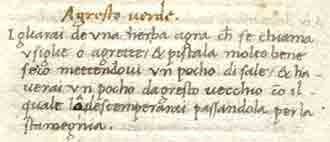 Agresto verde.
Igliarai de vna herba agra ch se chiama
vsiglie o agrette, & pistala molto bene
seco mettendoui vn pocho di sale, & ha-
uerai vn pocho dagresto vecchio cō il
quale la distemperarai passandola per la
stamegnia.